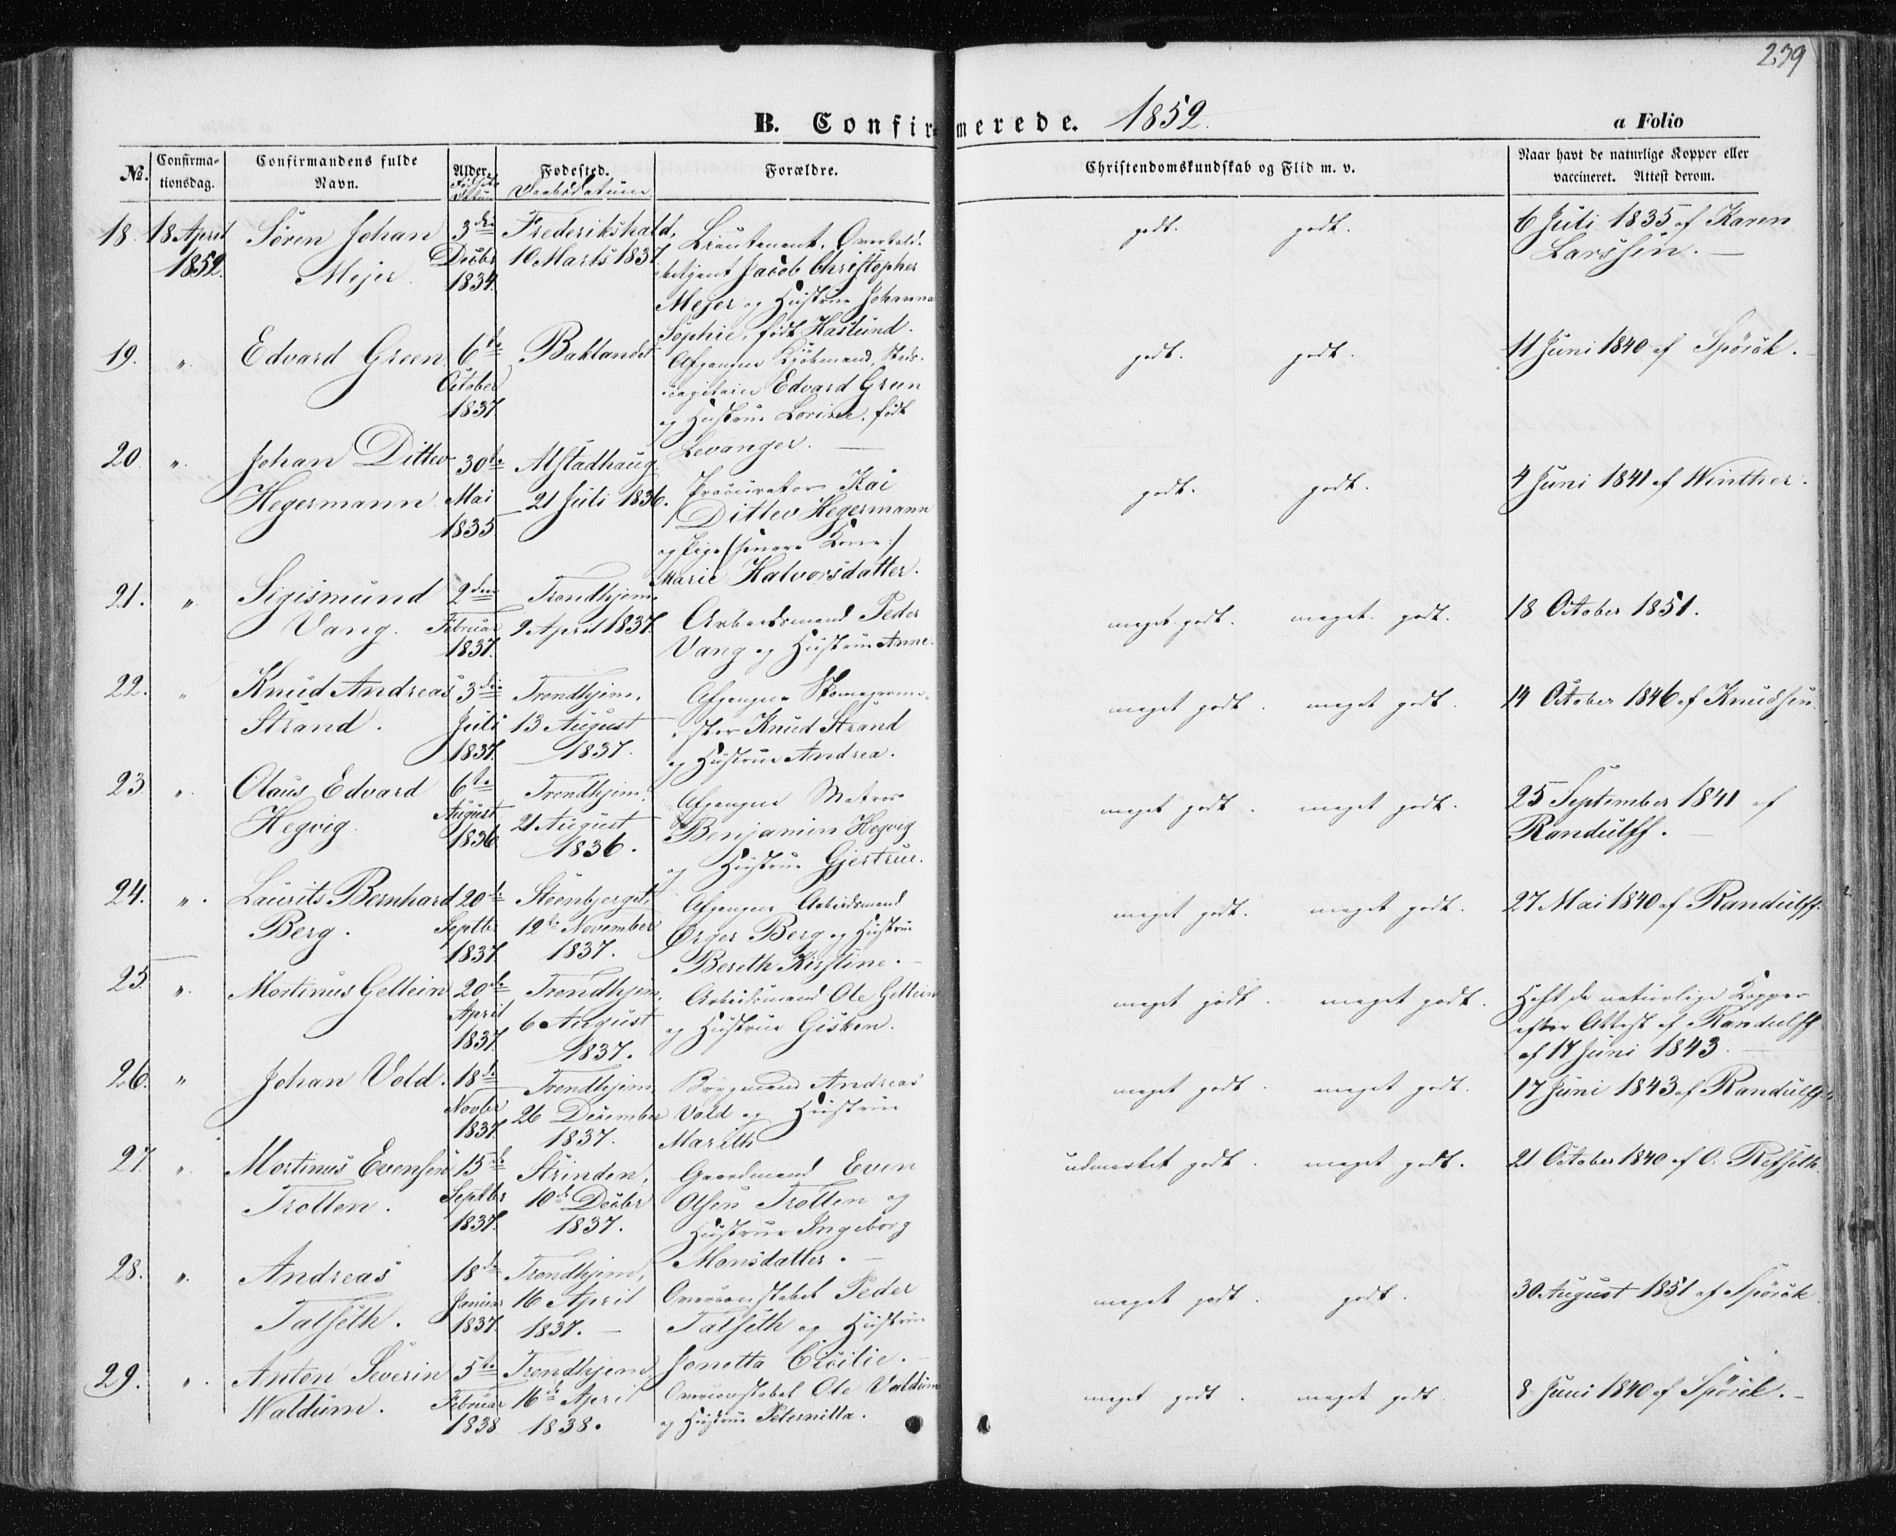 239
B. Confirmerede. 1852.
a Folio
№. Confirmationsdag. Confirmandens fulde Navn. Alder. Fødested. Forældre. Christendomskundskab og Flid m. v. Naar havt de naturlige Kopper eller vaccineret. Attest derom.
Fødsels Datum Daabsdatum
18. 18 April Søren Johan 3die Frederikshald, Lieutenant, godt. godt. 6 Juli 1835 af Karen
1852. Mejer. Decbr 10 Marts 1837. Jacob Christopher Larssen. —
1834. Mejer og Hustrue Johanna
Sophie, født Haslund.
19. " Edvard Green 6te Baklandet Afgangne Kjøbmand, godt. godt. 11 Juni 1840 af Spørck.
October Edvard Green
1837 og Hustrue Lorine, født
Levanger. —
20. " Johan Ditlev 30te Alstadhaug Procurator Kai godt. godt. 4 Juni 1841 af Winther.
Hegermann. Mai 21 Juli 1836. Ditlev Hegermann
1835 og Pige (senere Kone)
Marie Halvorsdatter.
21. " Sigismund 2den Trondhjem, Arbeidsmand Peder meget godt. meget godt. 18 October 1851.
Vang. Februar 2 April 1837. Vang og Hustrue Anne.
1837.
22. " Knud Andreas 3die Trondhjem, Afgangne Skomagerme- meget godt. meget godt. 14 October 1846 af Knudsen.
Strand. Juli 13 August ster Knud Strand
1837. 1837. og Hustrue Andrea.
23 " Olaus Edvard 6te Trondhjem, Afgangne Matros meget godt. meget godt. 25 September 1841 af
Hegvig. August 21 August Benjamin Hegvig Randulff. —
1836 1836. og Hustrue Gjertrue.
24. " Laurits Bernhard 20de Steenberget, Afgangne Arbeidsmand meget godt. meget godt. 27 Mai 1840 af Randulff.
Berg. Septbr 12te November Ørger Berg og Hustrue
1837. 1837. Bereth Kirstine. —
25 " Martinus Gellein 20de Trondhjem, Arbeidsmand Ole Gellein meget godt. meget godt. Haft de naturlige Kopper
April 6 August og Hustrue Gisken. efter Attest af Randulff
1837. 1837. af 17 Juni 1843.
26. " Johan Vold. 18de Trondhjem Brygmand Andreas meget godt. meget godt. 17 Juni 1843 af Randulff.
Novbr 26 December Vold og Hustrue
1837. 1837. Marith
27 " Martinus Evensen 15de Strinden, Gaardmand Even udmærket godt. meget godt. 21 October 1840 af O. Refseth.
Trolten. Septbr 10de Decbr Olsen Trolten og
1837. 1837. Hustrue Ingeborg
Monsdatter. —
28. " Andreas 18de Trondhjem, Overconstabel Peder meget godt. godt. 30 August 1851 af Spørck.
Talseth. Januar 16 April Talseth og Hustrue
1837 1837. — Jonetta Cicilie. —
29. " Anton Severin 5te Trondhjem, Overconstabel Ole Valdum meget godt. meget godt. 8 Juni 1840 af Spørck. —
Waldum. Februar 16de April og Hustrue Peternilla.
1838 1838.